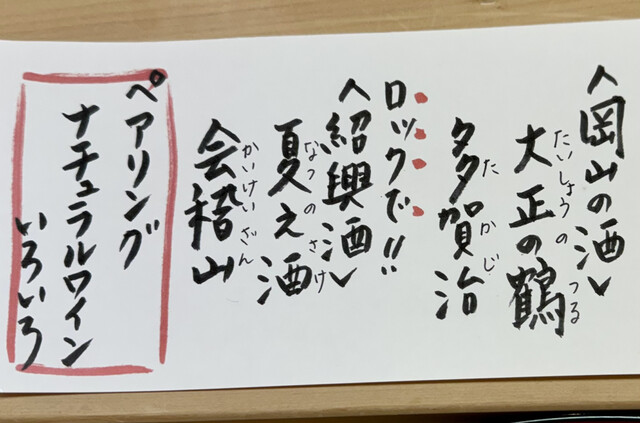 〈岡山の酒〉
大正の鶴
たいしょうの つる
多賀治
たかじ
ロックで!!
〈紹興酒〉
夏之酒
なつの さけ
会稽山
かいけいざん
ペアリング
ナチュラルワイン
いろいろ